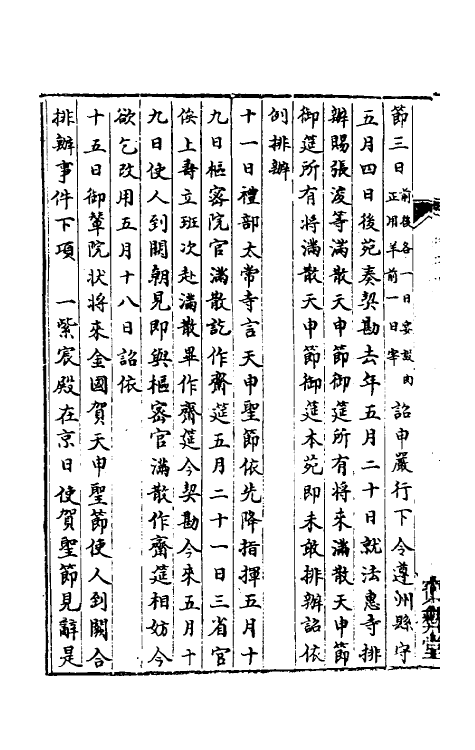 節三日前後各一日宰殺內正用羊前一日宰詔申嚴行下令遵洲縣守
五月四日後苑奏契勘去年五月二十日就法惠寺排
辦賜張浚等滿散天申節御筵所有將來滿散天申節
御筵所有將滿散天申節御筵本苑即未敢排辦詔依
例排辦
十一日禮部太常寺言天申聖節依先降指揮五月十
九日樞密院官滿散訖作齋筵五月二十一日三省官
俟上壽立班次赴滿散畢作齋筵今契勘今來五月十
九日使人到闕朝見即與樞密官滿散作齋筵相妨今
欲乞改用五月十八日詔依
十五日御輦院狀將來金國賀天申聖節使人到闕合
排辦事件下項　一紫宸殿在京日使賀聖節見辭是